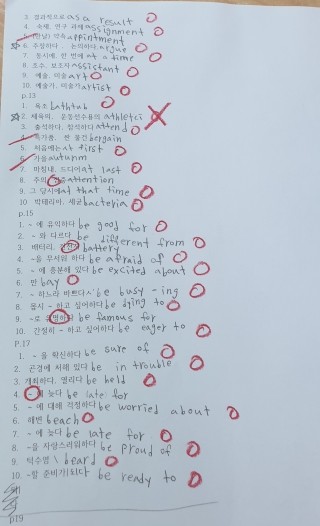 3. 결과적으로 as a result
4. 숙제, 연구 과제 assignment
5. (만남) 약속 appintment
☆6. 주장하다, 논의하다 argue
7. 동시에, 한 번에 at a time
8. 조수, 보조자 assistant
9. 예술, 미술 art
10. 예술가, 미술가 artist
p.13
1. 욕조 bathtub
☆2. 체육의, 운동선수용의 athletci
3. 출석하다, 참석하다 attend
4. 특가품, 싼 물건 bergain
5. 처음에는 at first
6. 가을 autunm
7. 마침내, 드디어 at last
8. 주의, attention
9. 그 당시에 at that time
10. 박테리아, 세균 bacteria
p.15
1. ~에 유익하다 be good for
2. ~와 다르다 be different from
3. 배터리, battery
4. ~을 무서워 하다 be afraid of
5. ~에 흥분해 있다 be excited about
6. 만 bay
7. ~하느라 바쁘다 be busy -ing
8. 몹시 ~하고 싶어하다 be dying to
9. ~로 유명하다 be famous for
10. 간절히 ~하고 싶어하다 be eager to
P.17
1. ~을 확신하다 be sure of
2. 곤경에 처해 있다 be in trouble
3. 개최하다, 열리다 be held
4. ~에 늦다 be late for
5. ~에 대해 걱정하다 be worried about
6. 해변 beach
7. ~에 늦다 be late for
8. ~을 자랑스러워하다 be proud of
9. 턱수염 beard
10. ~할 준비가 되다 be ready to
p19